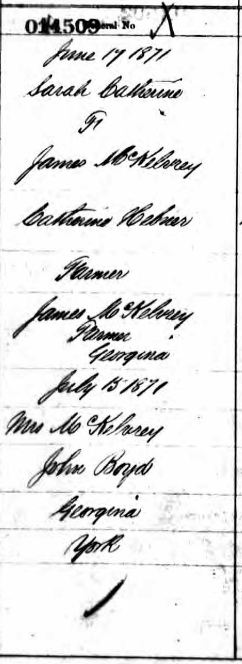 014509 Serial No
June 17 1871
Sarah Catherine
F
James McKelvey
Catherine Hebner
Farmer
James McKelvey
Farmer
Georgina
July 15 1871
Mrs McKelvey
John Boyd
Georgina
York